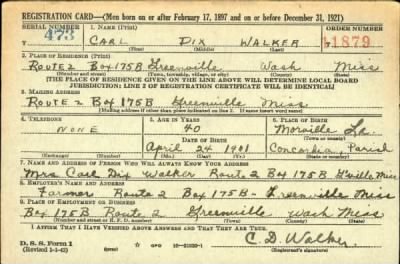 REGISTRATION CARD—(Men born on or after February 17, 1897 and on or before December 31, 1921)
SERIAL NUMBER 1. NAME (Print) ORDER NUMBER
473 CARL DIX WALKER 11879
(First) (Middle) (Last)
2. PLACE OF RESIDENCE (Print)
ROUTE 2 Box 175B Greenville Wash Miss
(Number and street) (Town, township, village, or city) (County) (State)
[THE PLACE OF RESIDENCE GIVEN ON THE LINE ABOVE WILL DETERMINE LOCAL BOARD
JURISDICTION; LINE 2 OF REGISTRATION CERTIFICATE WILL BE IDENTICAL]
3. MAILING ADDRESS
ROUTE 2 Box 175B Greenville Miss
[Mailing address if other than place indicated on line 2. If same insert word same]
4. TELEPHONE 5. AGE IN YEARS 6. PLACE OF BIRTH
NONE 40 Morville La
DATE OF BIRTH (Town or county)
April 24 1901 Concordia, Parish
(Exchange) (Number) (Mo.) (Day) (Yr.) (State or country)
7. NAME AND ADDRESS OF PERSON WHO WILL ALWAYS KNOW YOUR ADDRESS
Mrs Carl Dix Walker Route 2 Box 175B G'ville Miss
8. EMPLOYER'S NAME AND ADDRESS
Farmer Route 2 Box 175B- Greenville Miss
9. PLACE OF EMPLOYMENT OR BUSINESS
Box 175B Route 2 Greenville Wash Miss
(Number and street or R. F. D. number) (Town) (County) (State)
I AFFIRM THAT I HAVE VERIFIED ABOVE ANSWERS AND THAT THEY ARE TRUE.
D. S. S. Form 1 C. D. Walker
(Revised 1-1-42) GPO 16—21630-1 (Registrant's signature)